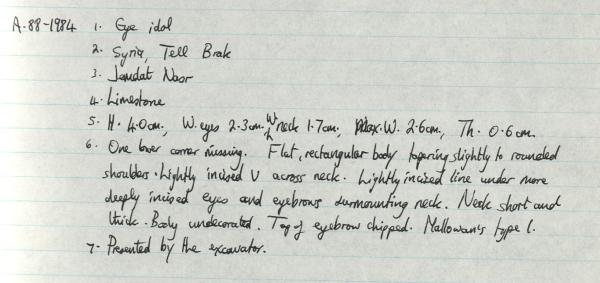 A.88-1984 1. Eye idol
2. Syria, Tell Brak
3. Jemdat Nasr
4. Limestone
5. H. 4.0cm, W. eyes 2.3cm, W neck 1.7cm, Max. W. 2.6cm, Th. 0.6cm
6. One lower corner missing. Flat, rectangular body tapering slightly to rounded
shoulders. Lightly incised V across neck. Lightly incised line under more
deeply incised eyes and eyebrows surmounting neck. Neck short and
thick. Body undecorated. Top of eyebrow chipped. Mallowan's type 1.
7. Presented by the excavator.